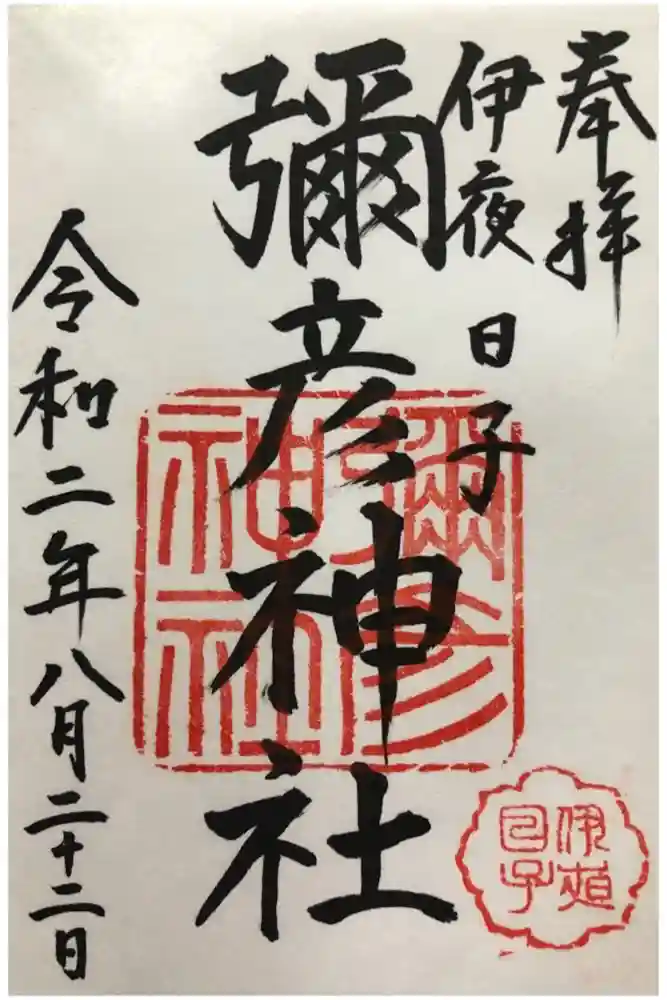 奉拝
伊夜日子
彌彦神社
令和二年八月二十二日
彌彦
神社
伊夜
日子